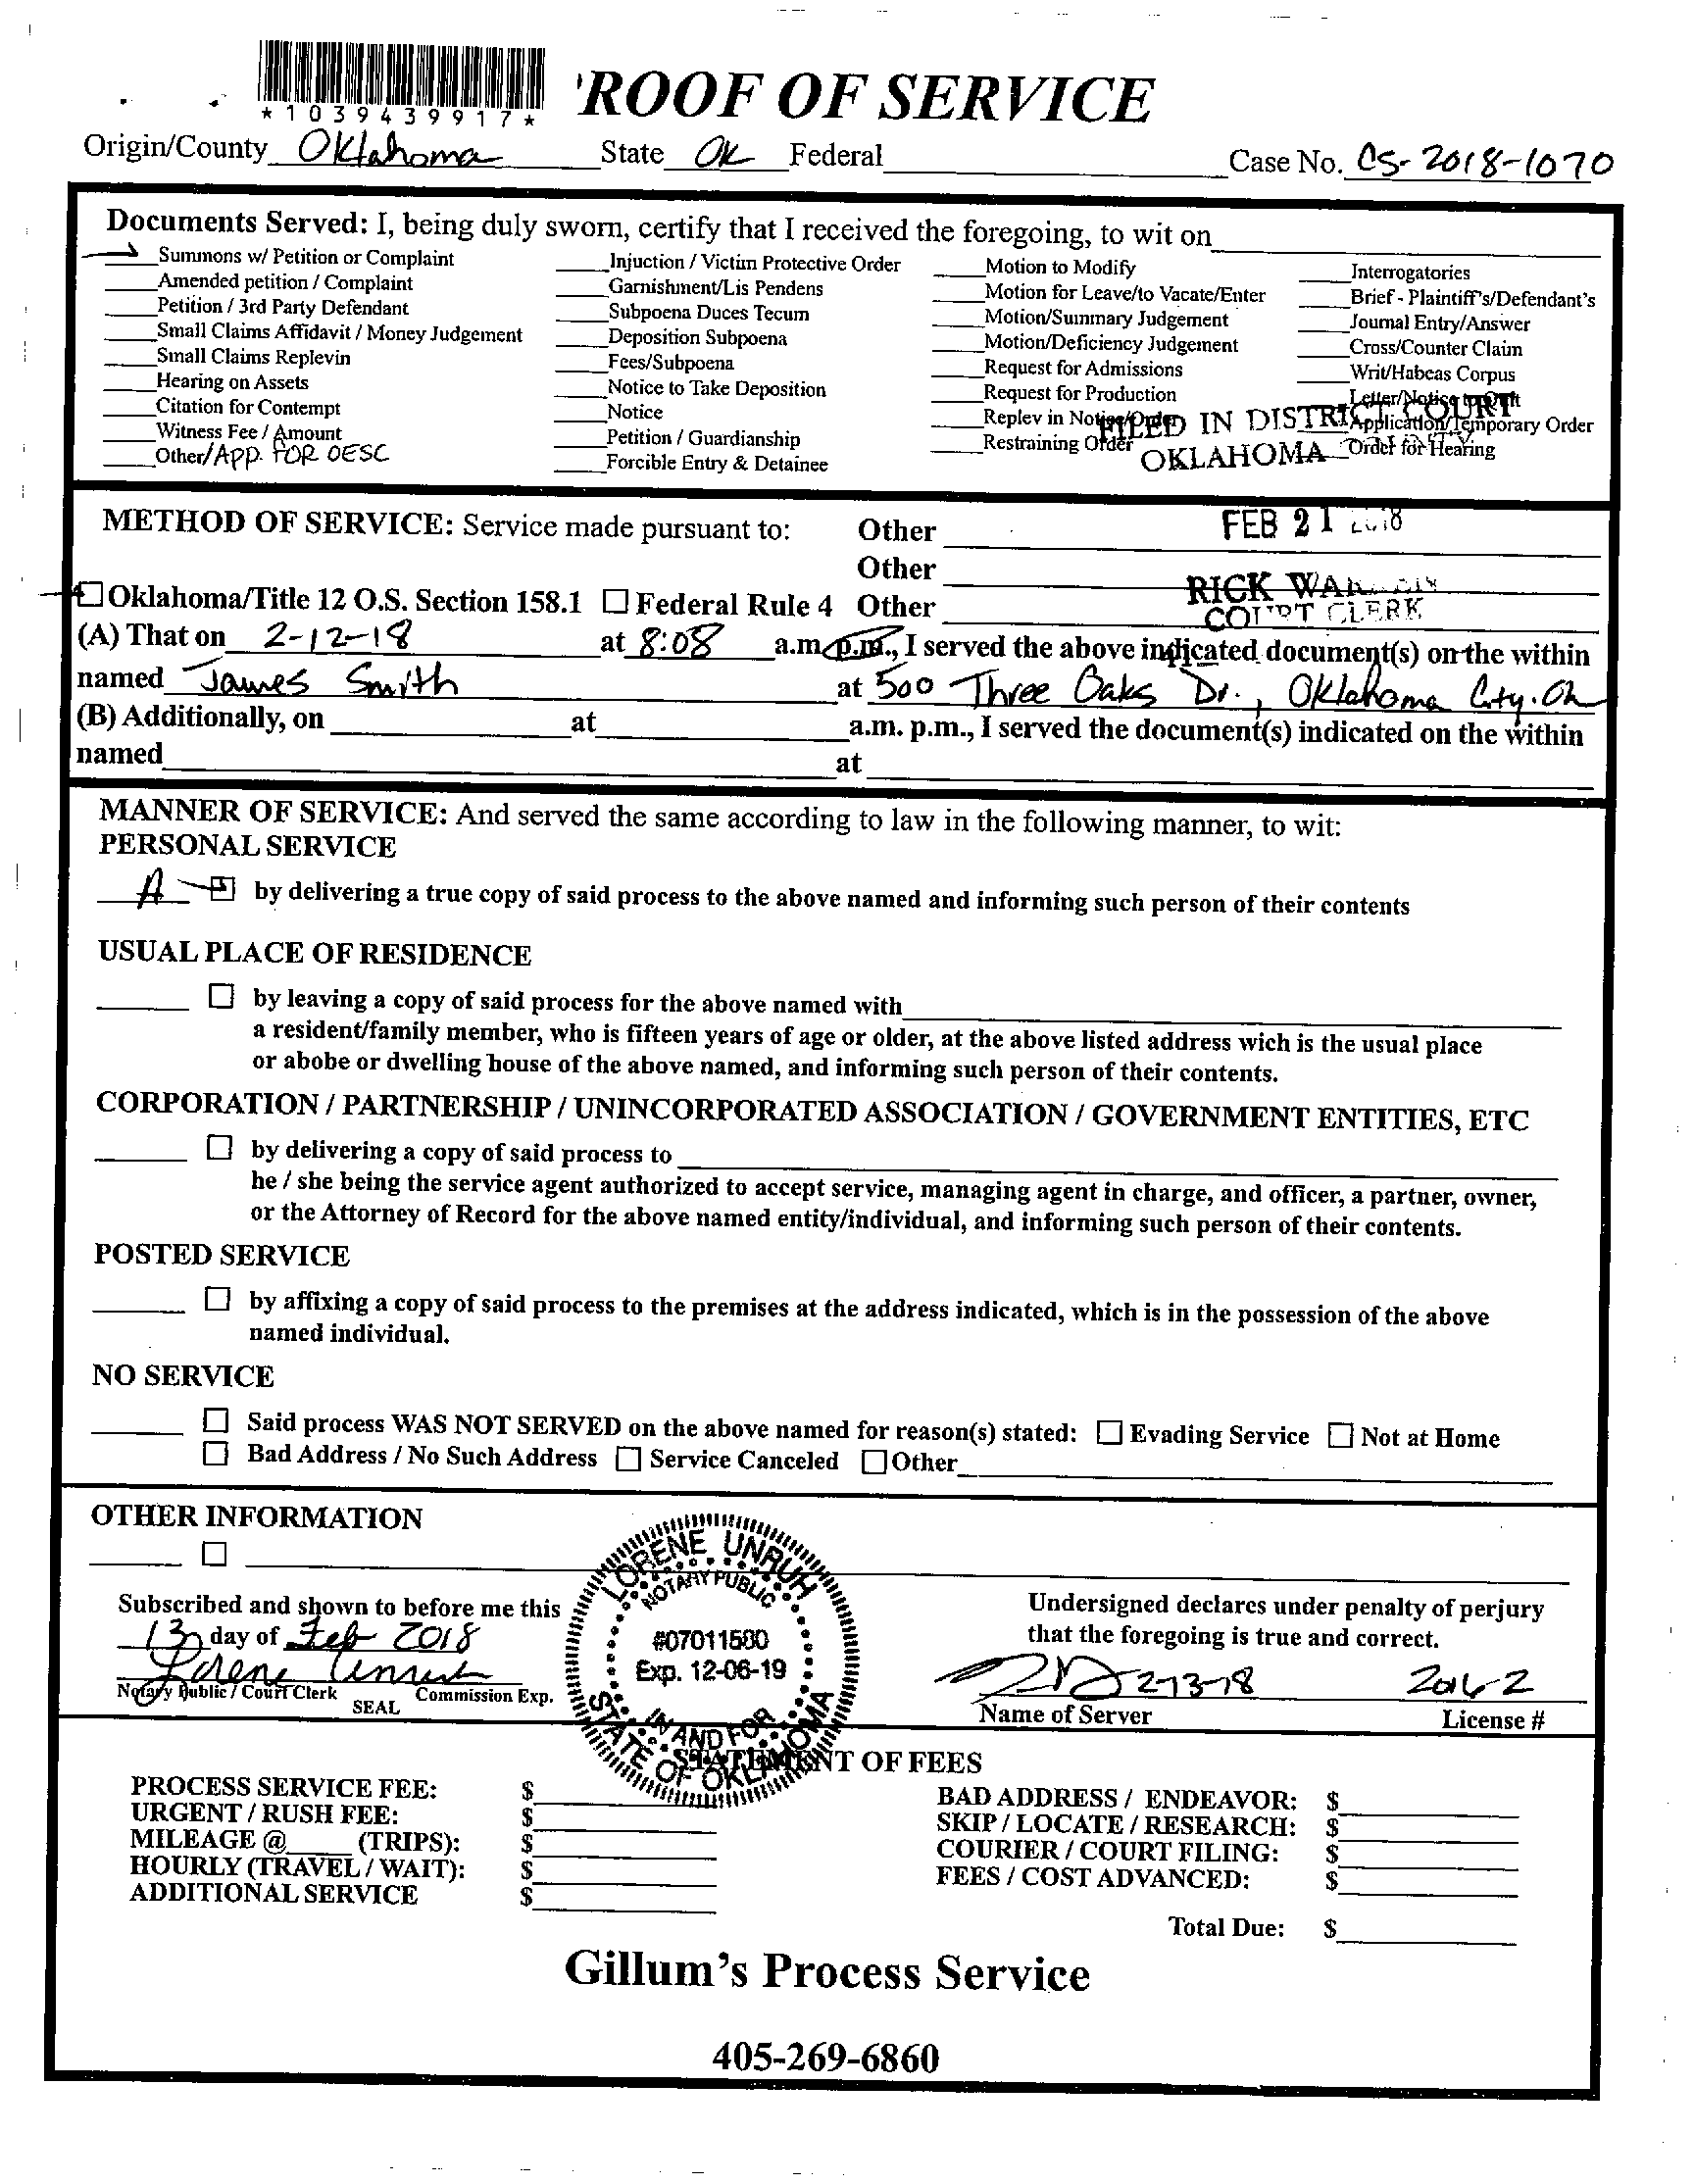 *1039439917*
'ROOF OF SERVICE
Origin/County Oklahoma State OK Federal Case No. CS-2018-1070
Documents Served: I, being duly sworn, certify that I received the foregoing, to wit on
Summons w/ Petition or Complaint
Amended petition / Complaint
Petition / 3rd Party Defendant
Small Claims Affidavit / Money Judgement
Small Claims Replevin
Hearing on Assets
Citation for Contempt
Witness Fee / Amount
Other/App. FOR OESC
Injuction / Victim Protective Order
Garnishment/Lis Pendens
Subpoena Duces Tecum
Deposition Subpoena
Fees/Subpoena
Notice to Take Deposition
Notice
Petition / Guardianship
Forcible Entry & Detainee
Motion to Modify
Motion for Leave/to Vacate/Enter
Motion/Summary Judgement
Motion/Deficiency Judgement
Request for Admissions
Request for Production
Replev in Notice/Order
Restraining Order
Interrogatories
Brief - Plaintiff's/Defendant's
Journal Entry/Answer
Cross/Counter Claim
Writ/Habcas Corpus
Letter/Notice to Quit
Application/Temporary Order
Order for Hearing
FILED IN DISTRICT COURT
OKLAHOMA COUNTY
FEB 21 2018
RICK WARREN
COURT CLERK
METHOD OF SERVICE: Service made pursuant to: Other
Other
Oklahoma/Title 12 O.S. Section 158.1 Federal Rule 4 Other
(A) That on 2-12-18 at 8:08 a.m. p.m., I served the above indicated document(s) on the within
named James Smith at 500 Three Oaks Dr., Oklahoma City, OK
(B) Additionally, on at a.m. p.m., I served the document(s) indicated on the within
named at
MANNER OF SERVICE: And served the same according to law in the following manner, to wit:
PERSONAL SERVICE
A by delivering a true copy of said process to the above named and informing such person of their contents
USUAL PLACE OF RESIDENCE
by leaving a copy of said process for the above named with
a resident/family member, who is fifteen years of age or older, at the above listed address wich is the usual place
or abobe or dwelling house of the above named, and informing such person of their contents.
CORPORATION / PARTNERSHIP / UNINCORPORATED ASSOCIATION / GOVERNMENT ENTITIES, ETC
by delivering a copy of said process to
he / she being the service agent authorized to accept service, managing agent in charge, and officer, a partner, owner,
or the Attorney of Record for the above named entity/individual, and informing such person of their contents.
POSTED SERVICE
by affixing a copy of said process to the premises at the address indicated, which is in the possession of the above
named individual.
NO SERVICE
Said process WAS NOT SERVED on the above named for reason(s) stated: Evading Service Not at Home
Bad Address / No Such Address Service Canceled Other
OTHER INFORMATION
Subscribed and shown to before me this
13 day of Feb 2018
Lorene Unruh
Notary Public / Court Clerk SEAL Commission Exp.
LORENE UNRUH
NOTARY PUBLIC
#07011580
Exp. 12-06-19
IN AND FOR
STATE OF OKLAHOMA
Undersigned declares under penalty of perjury
that the foregoing is true and correct.
2-13-18 2016-2
Name of Server License #
STATEMENT OF FEES
PROCESS SERVICE FEE: $
URGENT / RUSH FEE: $
MILEAGE @ (TRIPS): $
HOURLY (TRAVEL / WAIT): $
ADDITIONAL SERVICE $
BAD ADDRESS / ENDEAVOR: $
SKIP / LOCATE / RESEARCH: $
COURIER / COURT FILING: $
FEES / COST ADVANCED: $
Total Due: $
Gillum's Process Service
405-269-6860